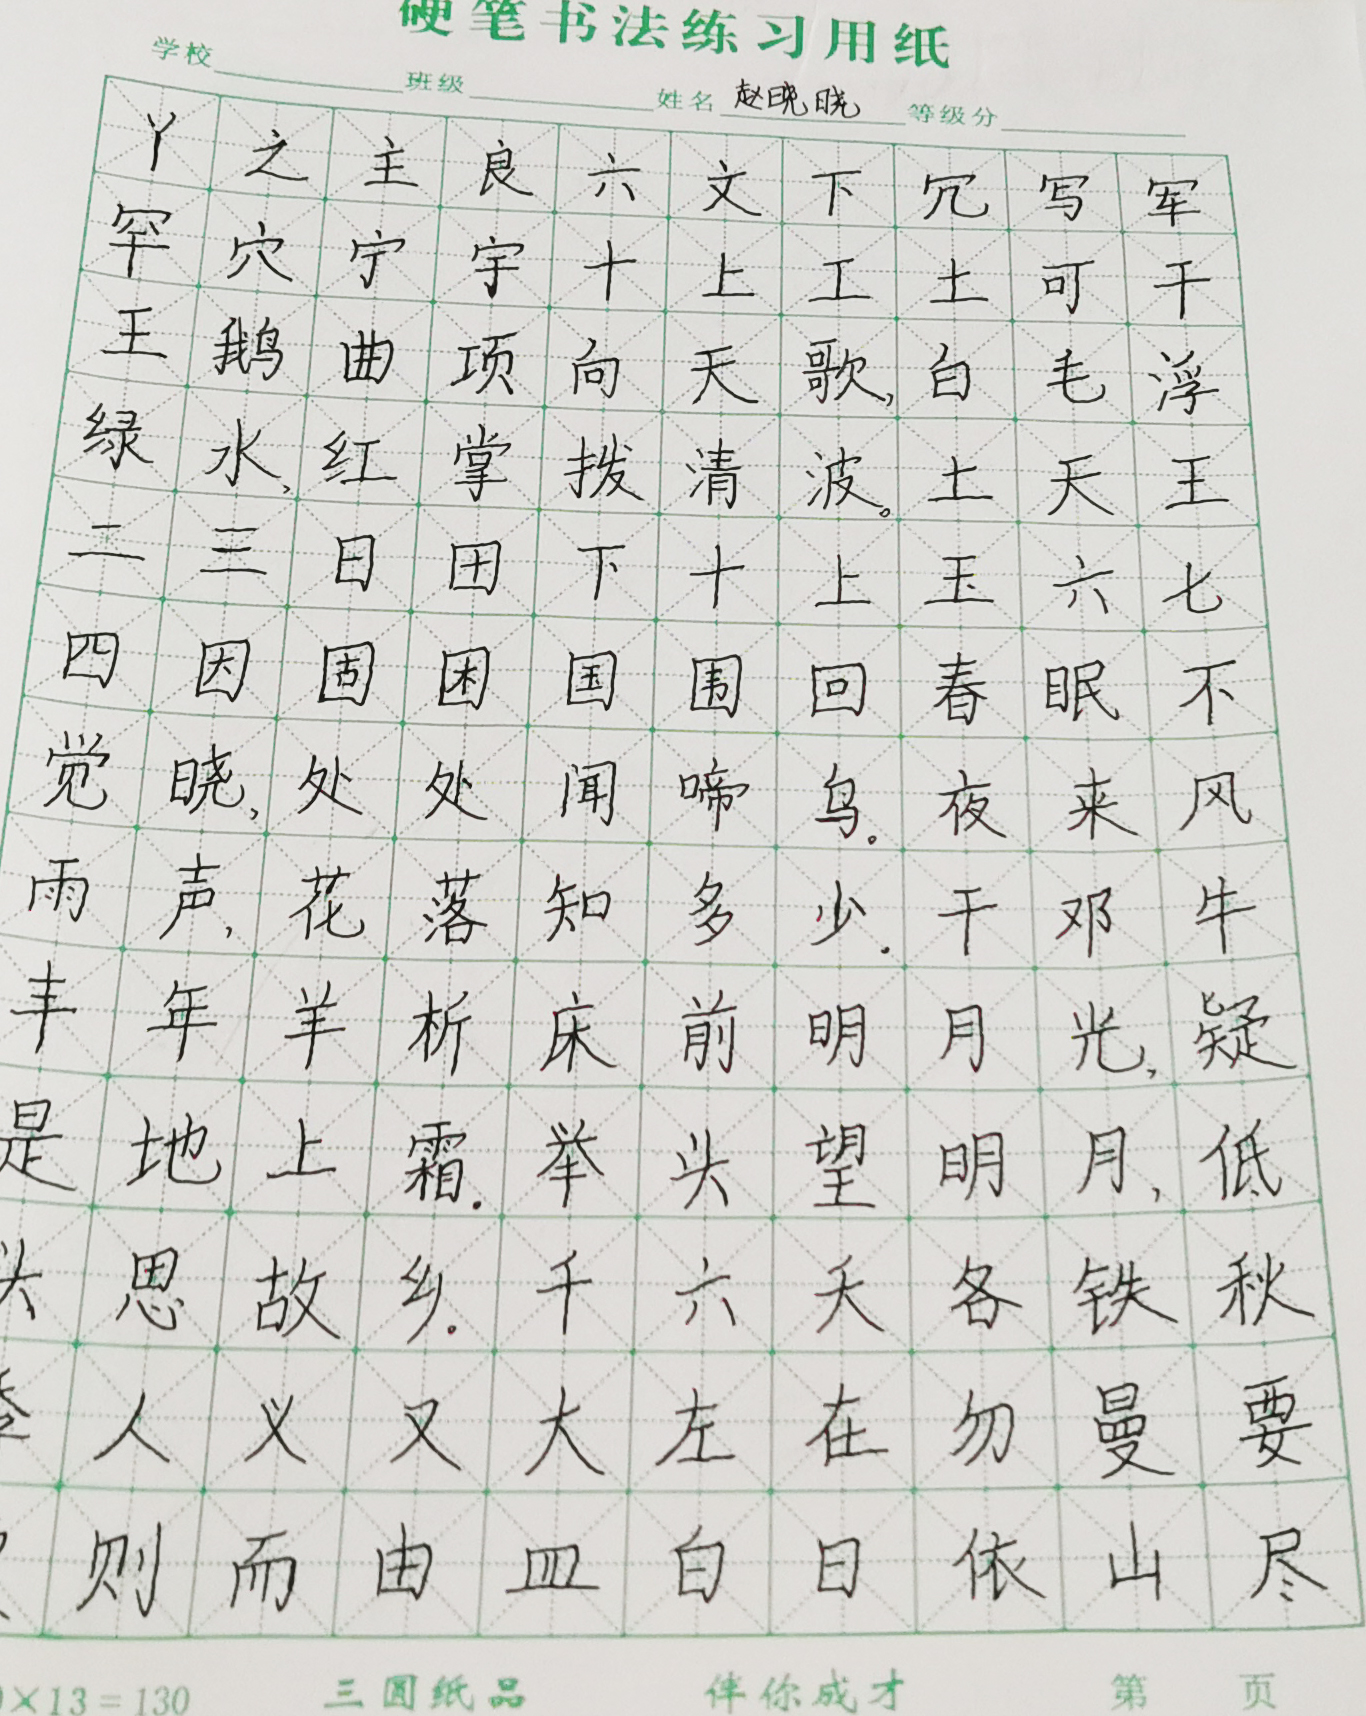 硬笔书法练习用纸
学校 班级 姓名 赵晓晓 等级分
丫之主良六文下冗写军
罕穴宁宇十上工土可干
王鹅曲项向天歌,白毛浮
绿水,红掌拨清波。土天王
二三日田下十上玉六七
四因固困国围回春眠不
觉晓,处处闻啼鸟。夜来风
雨声,花落知多少.干邓牛
丰年羊析床前明月光,疑
是地上霜.举头望明月,低
头思故乡.千六夭各铁秋
人义又大左在勿曼要
则而由皿白日依山尽
×13=130 三圆纸品 伴你成才 第 页